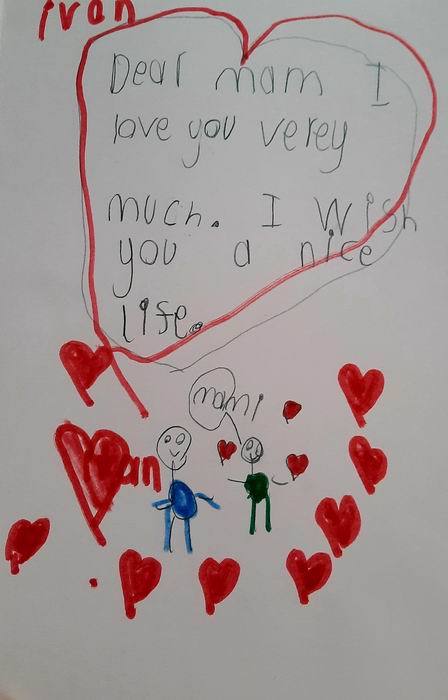 ivan
Dear mam I
love you verey
much. I Wish
you a nice
life.
mami